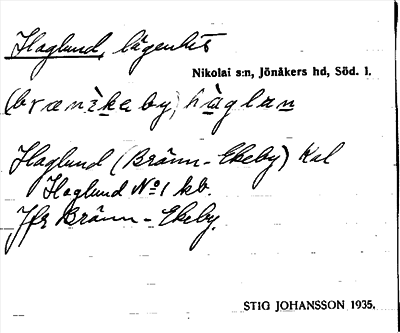 Haglund, lägenhet
Nikolai s:n, Jönåkers hd, Söd. l.
(brænìkeby) hàglun
Haglund (Bränn-Ekeby) Kal
Haglund No 1 kb.
Jfr Bränn-Ekeby.
STIG JOHANSSON 1935.